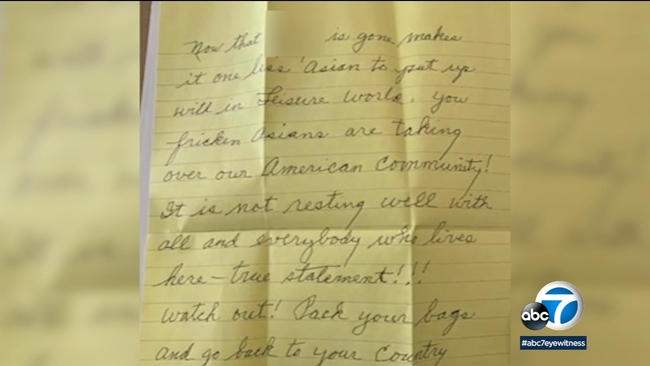 Now that is gone makes
it one less 'Asian to put up
will in Leisure World. You
fricken Asians are taking
over our American Community!
It is not resting well with
all and everybody who lives
here - true statement!!!
watch out! Pack your bags
and go back to your Country
abc 7
#abc7eyewitness